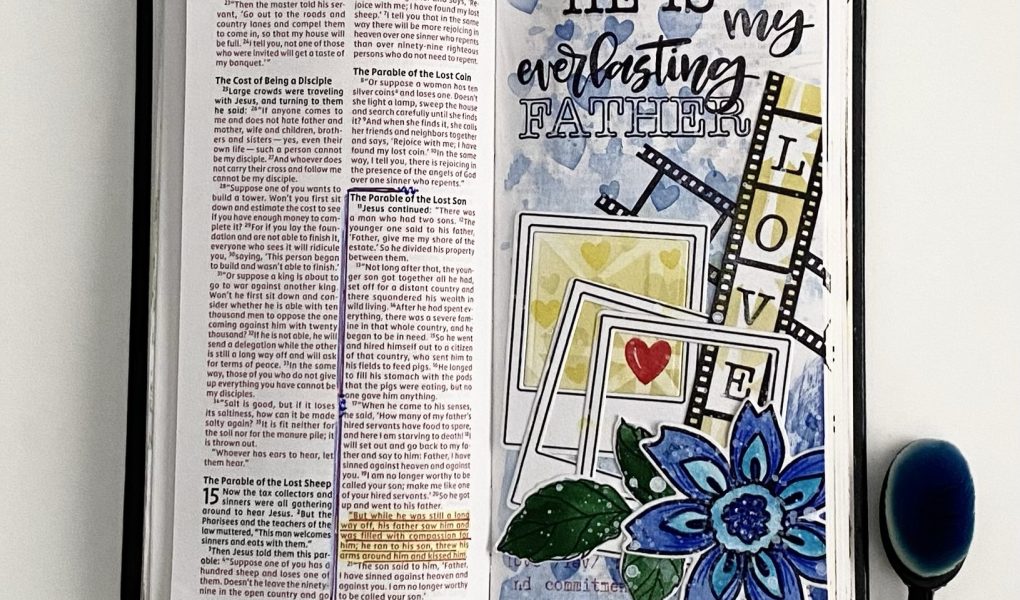 21"Then the master told his ser-
vant, 'Go out to the roads and
country lanes and compel them
to come in, so that my house will
be full. 24I tell you, not one of those
who were invited will get a taste of
my banquet.'"
The Cost of Being a Disciple
25Large crowds were traveling
with Jesus, and turning to them
he said: 26"If anyone comes to
me and does not hate father and
mother, wife and children, broth-
ers and sisters — yes, even their
own life — such a person cannot
be my disciple. 27And whoever does
not carry their cross and follow me
cannot be my disciple.
28"Suppose one of you wants to
build a tower. Won't you first sit
down and estimate the cost to see
if you have enough money to com-
plete it? 29For if you lay the foun-
dation and are not able to finish it,
everyone who sees it will ridicule
you, 30saying, 'This person began
to build and wasn't able to finish.'
31"Or suppose a king is about to
go to war against another king.
Won't he first sit down and con-
sider whether he is able with ten
thousand men to oppose the one
coming against him with twenty
thousand? 32If he is not able, he will
send a delegation while the other
is still a long way off and will ask
for terms of peace. 33In the same
way, those of you who do not give
up everything you have cannot be
my disciples.
34"Salt is good, but if it loses
its saltiness, how can it be made
salty again? 35It is fit neither for
the soil nor for the manure pile; it
is thrown out.
"Whoever has ears to hear, let
them hear."
The Parable of the Lost Sheep
15 Now the tax collectors and
sinners were all gathering
around to hear Jesus. 2But the
Pharisees and the teachers of the
law muttered, "This man welcomes
sinners and eats with them."
3Then Jesus told them this par-
able: 4"Suppose one of you has a
hundred sheep and loses one of
them. Doesn't he leave the ninety-
nine in the open country and go
and says, 'Re-
joice with me; I have found my lost
sheep.' 7I tell you that in the same
way there will be more rejoicing in
heaven over one sinner who repents
than over ninety-nine righteous
persons who do not need to repent.
The Parable of the Lost Coin
8"Or suppose a woman has ten
silver coins and loses one. Doesn't
she light a lamp, sweep the house
and search carefully until she finds
it? 9And when she finds it, she calls
her friends and neighbors together
and says, 'Rejoice with me; I have
found my lost coin.' 10In the same
way, I tell you, there is rejoicing in
the presence of the angels of God
over one sinner who repents."
The Parable of the Lost Son
11Jesus continued: "There was
a man who had two sons. 12The
younger one said to his father,
'Father, give me my share of the
estate.' So he divided his property
between them.
13"Not long after that, the youn-
ger son got together all he had,
set off for a distant country and
there squandered his wealth in
wild living. 14After he had spent ev-
erything, there was a severe fam-
ine in that whole country, and he
began to be in need. 15So he went
and hired himself out to a citizen
of that country, who sent him to
his fields to feed pigs. 16He longed
to fill his stomach with the pods
that the pigs were eating, but no
one gave him anything.
17"When he came to his senses,
he said, 'How many of my father's
hired servants have food to spare,
and here I am starving to death! 18I
will set out and go back to my fa-
ther and say to him: Father, I have
sinned against heaven and against
you. 19I am no longer worthy to be
called your son; make me like one
of your hired servants.' 20So he got
up and went to his father.
"But while he was still a long
way off, his father saw him and
was filled with compassion for
him; he ran to his son, threw his
arms around him and kissed him.
21"The son said to him, 'Father,
I have sinned against heaven and
against you. I am no longer worthy
to be called your son.'
HE IS
my
everlasting
FATHER
L
O
V
E
nd commitme